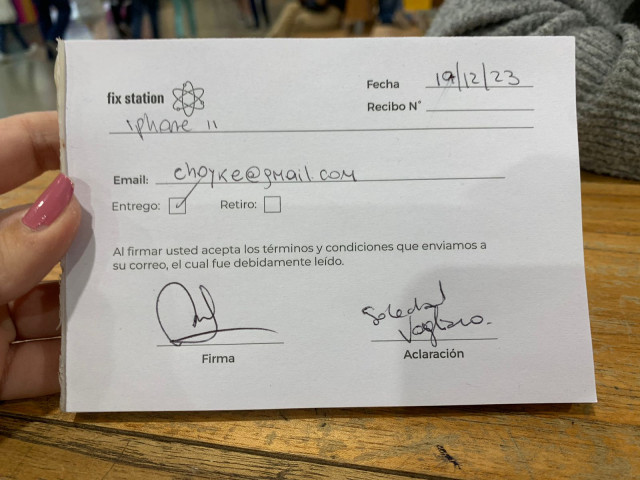 fix station
Fecha 19/12/23
Recibo N°
iphone 11
Email: choyke@gmail.com
Entrego: Retiro:
Al firmar usted acepta los términos y condiciones que enviamos a
su correo, el cual fue debidamente leído.
Soledad
Firma
Aclaración